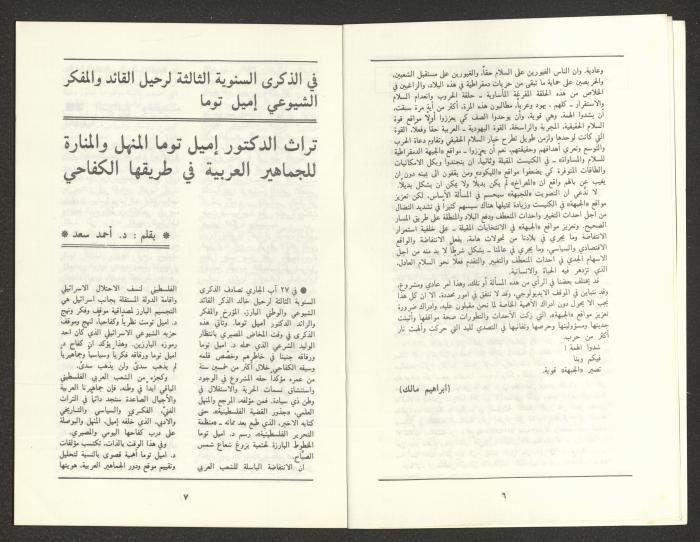 وعادية. وان الناس الغيورين على السلام حقاً، والغيورين على مستقبل الشعبين،
والحريصين على حماية ما تبقى من حريات ديمقراطية في هذه البلاد، والراغبين في
الخلاص من هذه الحلقة المفرغة المأساوية ـ حلقة الحروب وانعدام السلام
والاستقرار ـ كلهم ، يهود وعرباً، مطالبون هذه المرة، أكثر من أية مرة سبقت،
أن يشدوا الهمة. وهي قوية، وأن يوحدوا الصف كي يعززوا أولاً مواقع قوة
السلام الحقيقية، المجربة والراسخة، القوة اليهودية ـ العربية حقا وفعلا، القوة
التي كانت لوحدها ولزمن طويل تطرح خيار السلام الحقيقي وتقاوم دعاة الحرب
والتوسع وتعري أهدافهم وحقيقتهم، نعم أن يعززوا ـ مواقع «الجبهة الديمقراطية
للسلام والمساواة» ـ في الكنيست المقبلة وثانياً، ان يتجندوا وبكل الامكانيات
والطاقات المتوفرة كي يضعفوا مواقع «الليكود» ومن يقفون الى يمينه دون ان
يغيب عن بالهم واقع ان «المعراخ» لم يكن بديلاً ولا يمكن ان يشكل بديلاً.
لا ندعي ان التصويت «للجبهة» سيحسم في المسألة الأساس. لكن تعزيز
مواقع «الجبهة» في الكنيست وزيادة تمثيلها هناك سيسهم كثيرا في تشديد النضال
من اجل احداث التغيير واحداث المنعطف ودفع البلاد والمنطقة على طريق المسار
الصحيح. وتعزيز مواقع «الجبهة» في الانتخابات المقبلة ـ على خلفية استمرار
الانتفاضة وما يجري في بلادنا من تحولات هامة، بفعل الانتفاضة والواقع
الاقتصادي والسياسي، وما يجري في عالمنا ـ يشكل شرطاً لا بد منه من اجل
الاسهام الجدي في احداث المنعطف والتغيير والتقدم فعلا نحو السلام العادل،
الذي تزدهر فيه الحياة والانسانية.
قد يختلف بعضنا في الرأي من هذه المسألة أو تلك، وهذا امر عادي ومشروع،
وقد نتباين في الموقف الايديولوجي، وقد لا نتفق في امور محددة، الا ان كل هذا
يجب الا يحول دون ادراك الاهمية الخاصة لما نحن مقبلون عليه، وادراك ضرورة
تعزيز مواقع «الجبهة»، التي زكت الأحداث والتطورات صحة مواقفها وأثبتت
جديتها ومسؤوليتها وحرصها وتفانيها في التصدي لليد التي حركت وألهبت نار
أكثر من حرب.
شدوا الهمة !
فيكم وبنا
تصير «الجبهة» قوية.
(ابراهيم مالك)
٦
في الذكرى السنوية الثالثة لرحيل القائد والمفكر
الشيوعي إميل توما
تراث الدكتور إميل توما المنهل والمنارة
للجماهير العربية في طريقها الكفاحي
* بقلم : د. أحمد سعد *
● في ٢٧ آب الجاري تصادف الذكرى
السنوية الثالثة لرحيل خالد الذكر القائد
الشيوعي والوطني البارز، المؤرخ والمفكر
والرائد الدكتور اميل توما. وتأتي هذه
الذكرى في وقت المخاض المصيري بانتظار
الوليد الشرعي الذي حمله د. اميل توما
ورفاقه جنينا في خاطرهم وخصص قلمه
وسيفه الكفاحي خلال أكثر من خمسين سنة
من عمره مؤكداً حقه المشروع في الوجود
واستنشاق نسمات الحرية والاستقلال في
وطن ذي سيادة. فمن مؤلفه، المرجع والمنهل
العلمي، «جذور القضية الفلسطينية»، حتى
كتابه الاخير، الذي طبع بعد مماته ـ «منظمة
التحرير الفلسطينية»، رسم د. اميل توما
الخطوط البارزة لحتمية بزوغ شعاع شمس
الصباح.
ان الانتفاضة الباسلة للشعب العربي
الفلسطيني لنسف الاحتلال الاسرائيلي
واقامة الدولة المستقلة بجانب اسرائيل هي
التجسيم البارز لمصداقية موقف وفكر ونهج
د. اميل تومت نظرياً وكفاحياً، لنهج وموقف
حزبه الشيوعي الاسرائيلي الذي كان أحد
رموزه البارزين. وهذا يؤكد ان كفاح د.
اميل توما ورفاقه فكرياً وسياسياً وجماهيرياً
لم يذهب سدىً ولن يذهب سدىً.
وكجزء من الشعب العربي الفلسطيني
الباقي أبداً في وطنه، فإن جماهيرنا العربية
والأجيال الصاعدة ستجد دائماً في التراث
الغني، الفكري والسياسي والتاريخي
والأدبي، الذي خلفه إميل، المنهل والبوصلة
على درب كفاحها اليومي والمصيري.
وفي هذا الوقت بالذات، تكتسب مؤلفات
د. اميل توما أهمية قصوى بالنسبة لتحليل
وتقييم موقع ودور الجماهير العربية، هويتها
٧